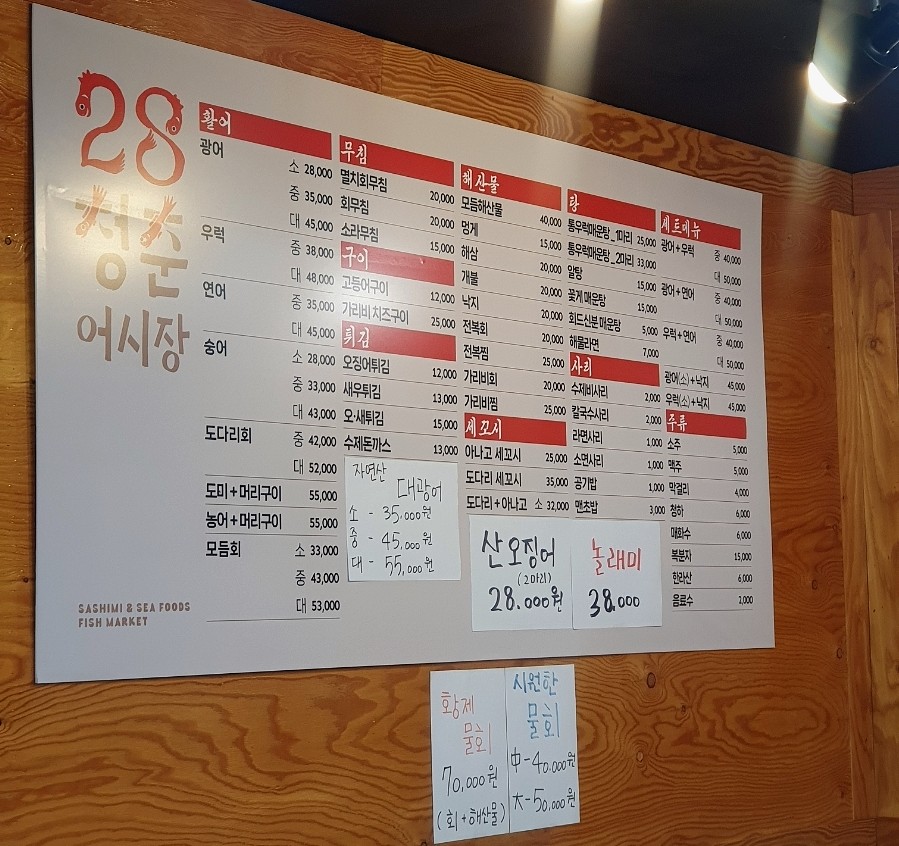 28
청춘
어시장
SASHIMI & SEA FOODS
FISH MARKET
활어
광어 소 28,000
중 35,000
대 45,000
우럭 중 38,000
대 48,000
연어 중 35,000
대 45,000
숭어 소 28,000
중 33,000
대 43,000
도다리회 중 42,000
대 52,000
도미 + 머리구이 55,000
농어 + 머리구이 55,000
모듬회 소 33,000
중 43,000
대 53,000
무침
멸치회무침 20,000
회무침 20,000
소라무침 15,000
구이
고등어구이 12,000
가리비 치즈구이 25,000
튀김
오징어튀김 12,000
새우튀김 13,000
오·새튀김 15,000
수제돈까스 13,000
자연산
대광어
소 - 35,000원
중 - 45,000원
대 - 55,000원
해산물
모듬해산물 40,000
멍게 15,000
해삼 20,000
개불 20,000
낙지 20,000
전복회 20,000
전복찜 25,000
가리비회 20,000
가리비찜 25,000
세꼬시
아나고 세꼬시 25,000
도다리 세꼬시 35,000
도다리 + 아나고 소 32,000
탕
통우럭매운탕_1마리 25,000
통우럭매운탕_2마리 33,000
알탕 15,000
꽃게 매운탕 15,000
회드신분 매운탕 5,000
해물라면 7,000
사리
수제비사리 2,000
칼국수사리 2,000
라면사리 1,000
소면사리 1,000
공기밥 1,000
맨초밥 3,000
세트메뉴
광어 + 우럭 중 40,000
대 50,000
광어 + 연어 중 40,000
대 50,000
우럭 + 연어 중 40,000
대 50,000
광어(소) + 낙지 45,000
우럭(소) + 낙지 45,000
주류
소주 5,000
맥주 5,000
막걸리 4,000
청하 6,000
매화수 6,000
복분자 15,000
한라산 6,000
음료수 2,000
산오징어
(2마리)
28.000원
놀래미
38.000
황제
물회
70,000원
(회+해산물)
시원한
물회
中-40.000원
大-50,000원